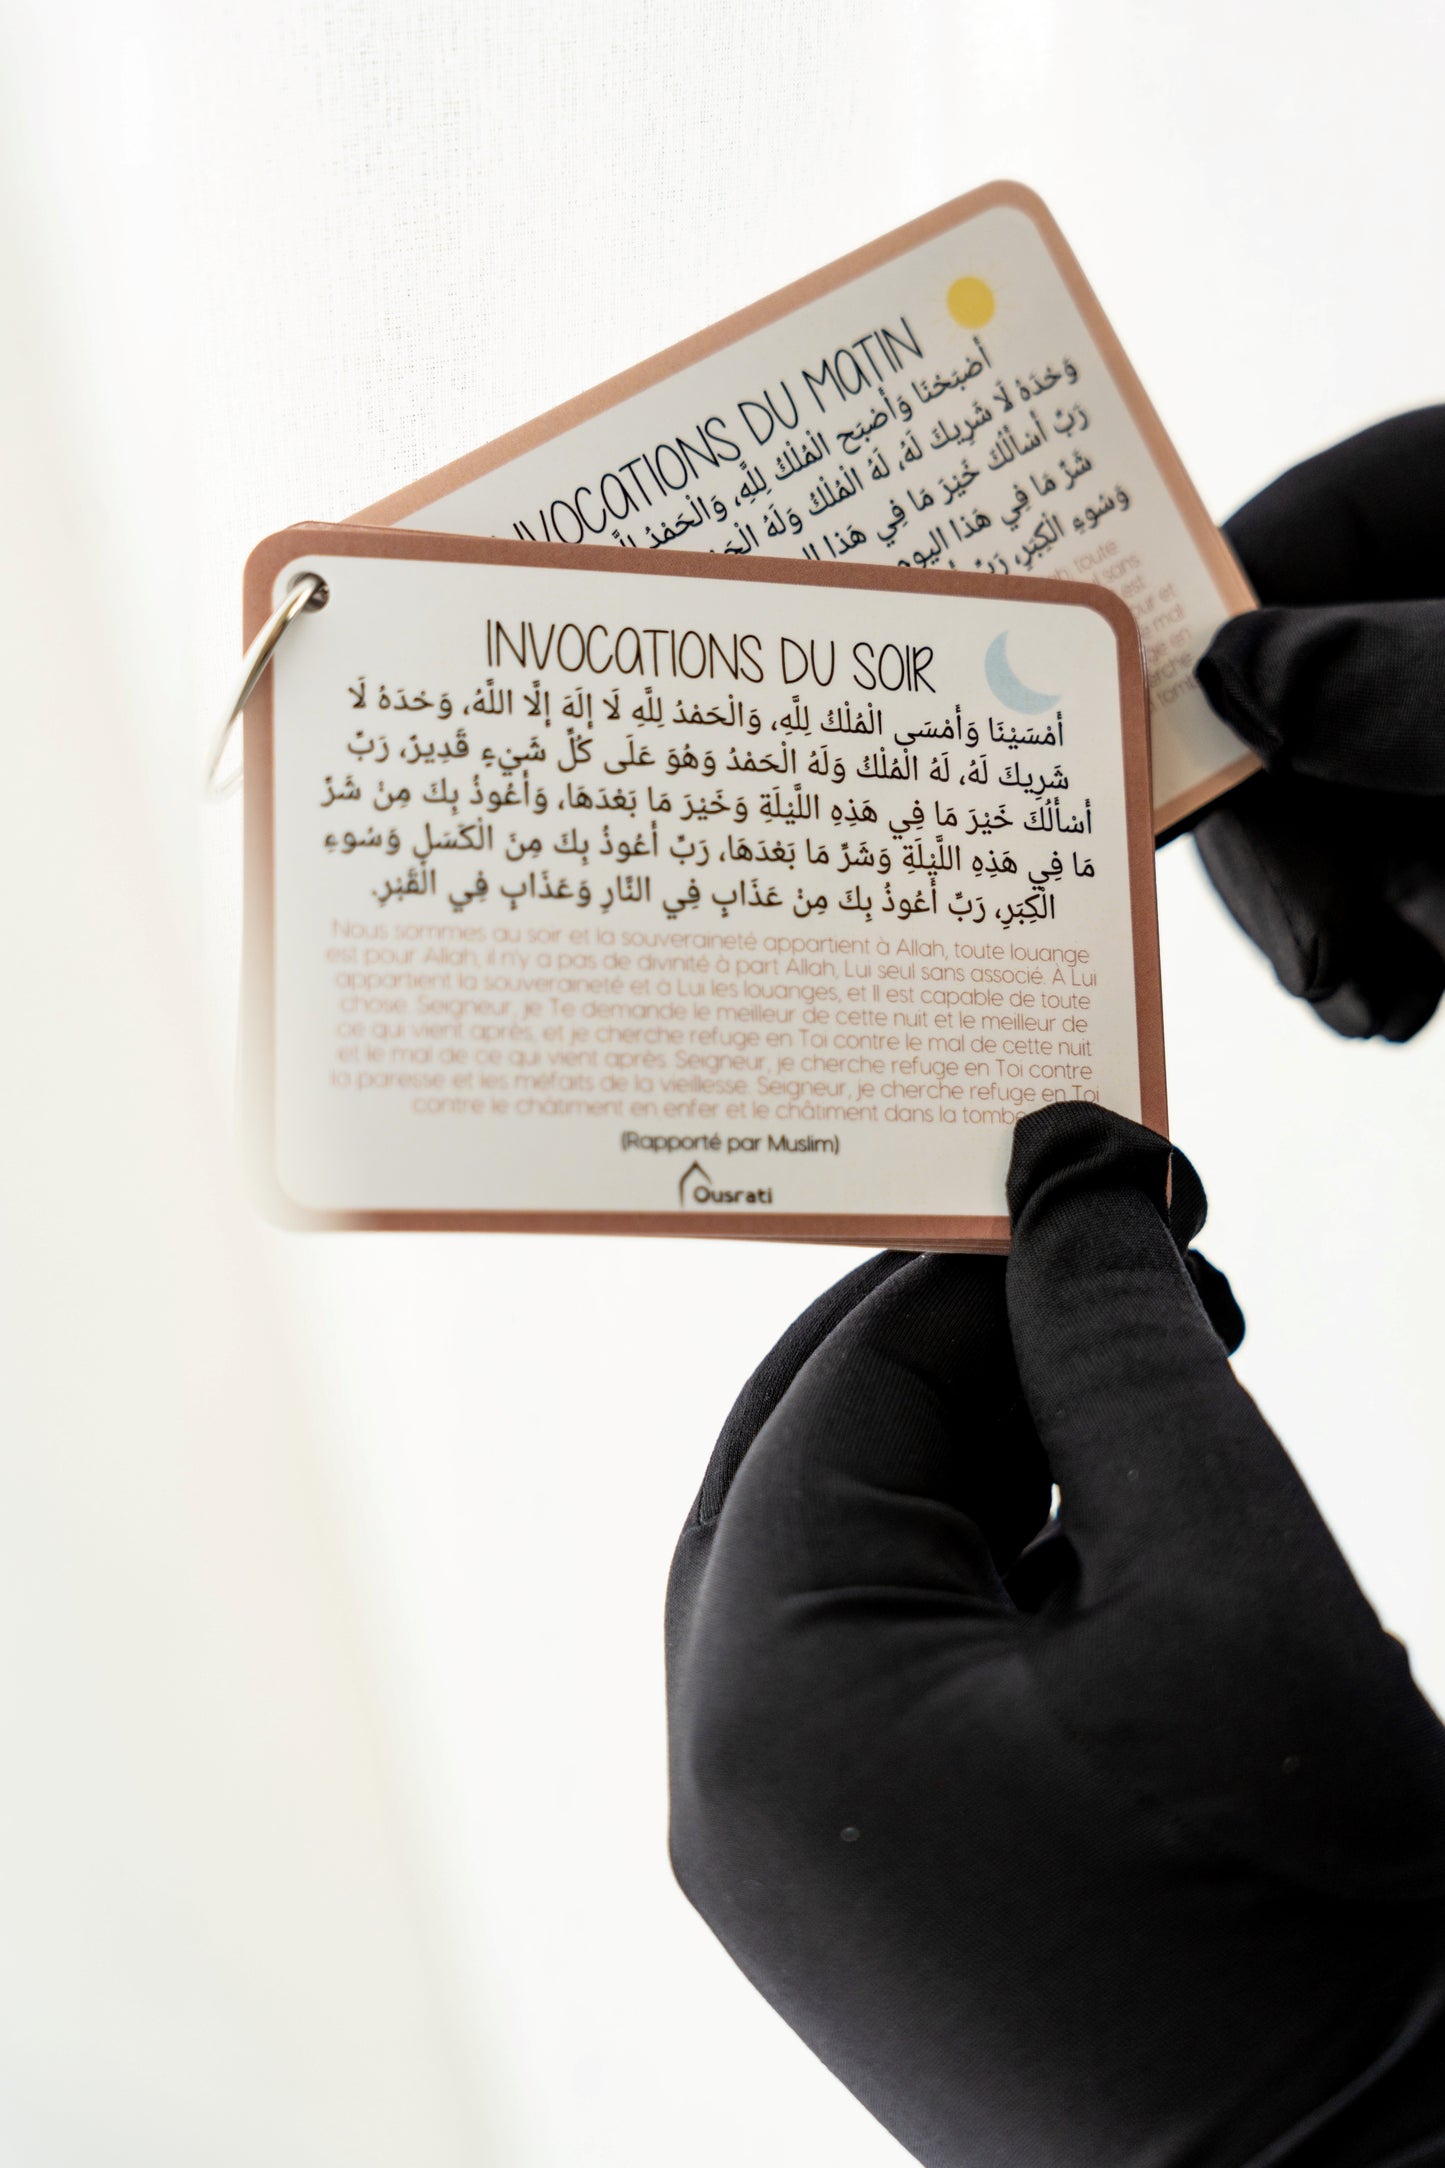 INVOCATIONS DU MATIN
أَصْبَحْنَا وَأَصْبَحَ الْمُلْكُ لِلَّهِ، وَالْحَمْدُ
وَحْدَهُ لَا شَرِيكَ لَهُ، لَهُ الْمُلْكُ وَلَهُ
رَبِّ أَسْأَلُكَ خَيْرَ مَا فِي هَذَا
شَرِّ مَا فِي هَذَا اليوم
وَسُوءِ الْكِبَرِ، رَبِّ
toute
sans
est
et
mal
en
INVOCATIONS DU SOIR
أَمْسَيْنَا وَأَمْسَى الْمُلْكُ لِلَّهِ، وَالْحَمْدُ لِلَّهِ لَا إِلَهَ إِلَّا اللَّهُ، وَحْدَهُ لَا
شَرِيكَ لَهُ، لَهُ الْمُلْكُ وَلَهُ الْحَمْدُ وَهُوَ عَلَى كُلِّ شَيْءٍ قَدِيرٌ، رَبِّ
أَسْأَلُكَ خَيْرَ مَا فِي هَذِهِ اللَّيْلَةِ وَخَيْرَ مَا بَعْدَهَا، وَأَعُوذُ بِكَ مِنْ شَرِّ
مَا فِي هَذِهِ اللَّيْلَةِ وَشَرِّ مَا بَعْدَهَا، رَبِّ أَعُوذُ بِكَ مِنَ الْكَسَلِ وَسُوءِ
الْكِبَرِ، رَبِّ أَعُوذُ بِكَ مِنْ عَذَابٍ فِي النَّارِ وَعَذَابٍ فِي الْقَبْرِ.
Nous sommes au soir et la souveraineté appartient à Allah, toute louange
est pour Allah, il n'y a pas de divinité à part Allah, Lui seul sans associé. À Lui
appartient la souveraineté et à Lui les louanges, et Il est capable de toute
chose. Seigneur, je Te demande le meilleur de cette nuit et le meilleur de
ce qui vient après, et je cherche refuge en Toi contre le mal de cette nuit
et le mal de ce qui vient après. Seigneur, je cherche refuge en Toi contre
la paresse et les méfaits de la vieillesse. Seigneur, je cherche refuge en Toi
contre le châtiment en enfer et le châtiment dans la tombe
(Rapporté par Muslim)
Ousrati